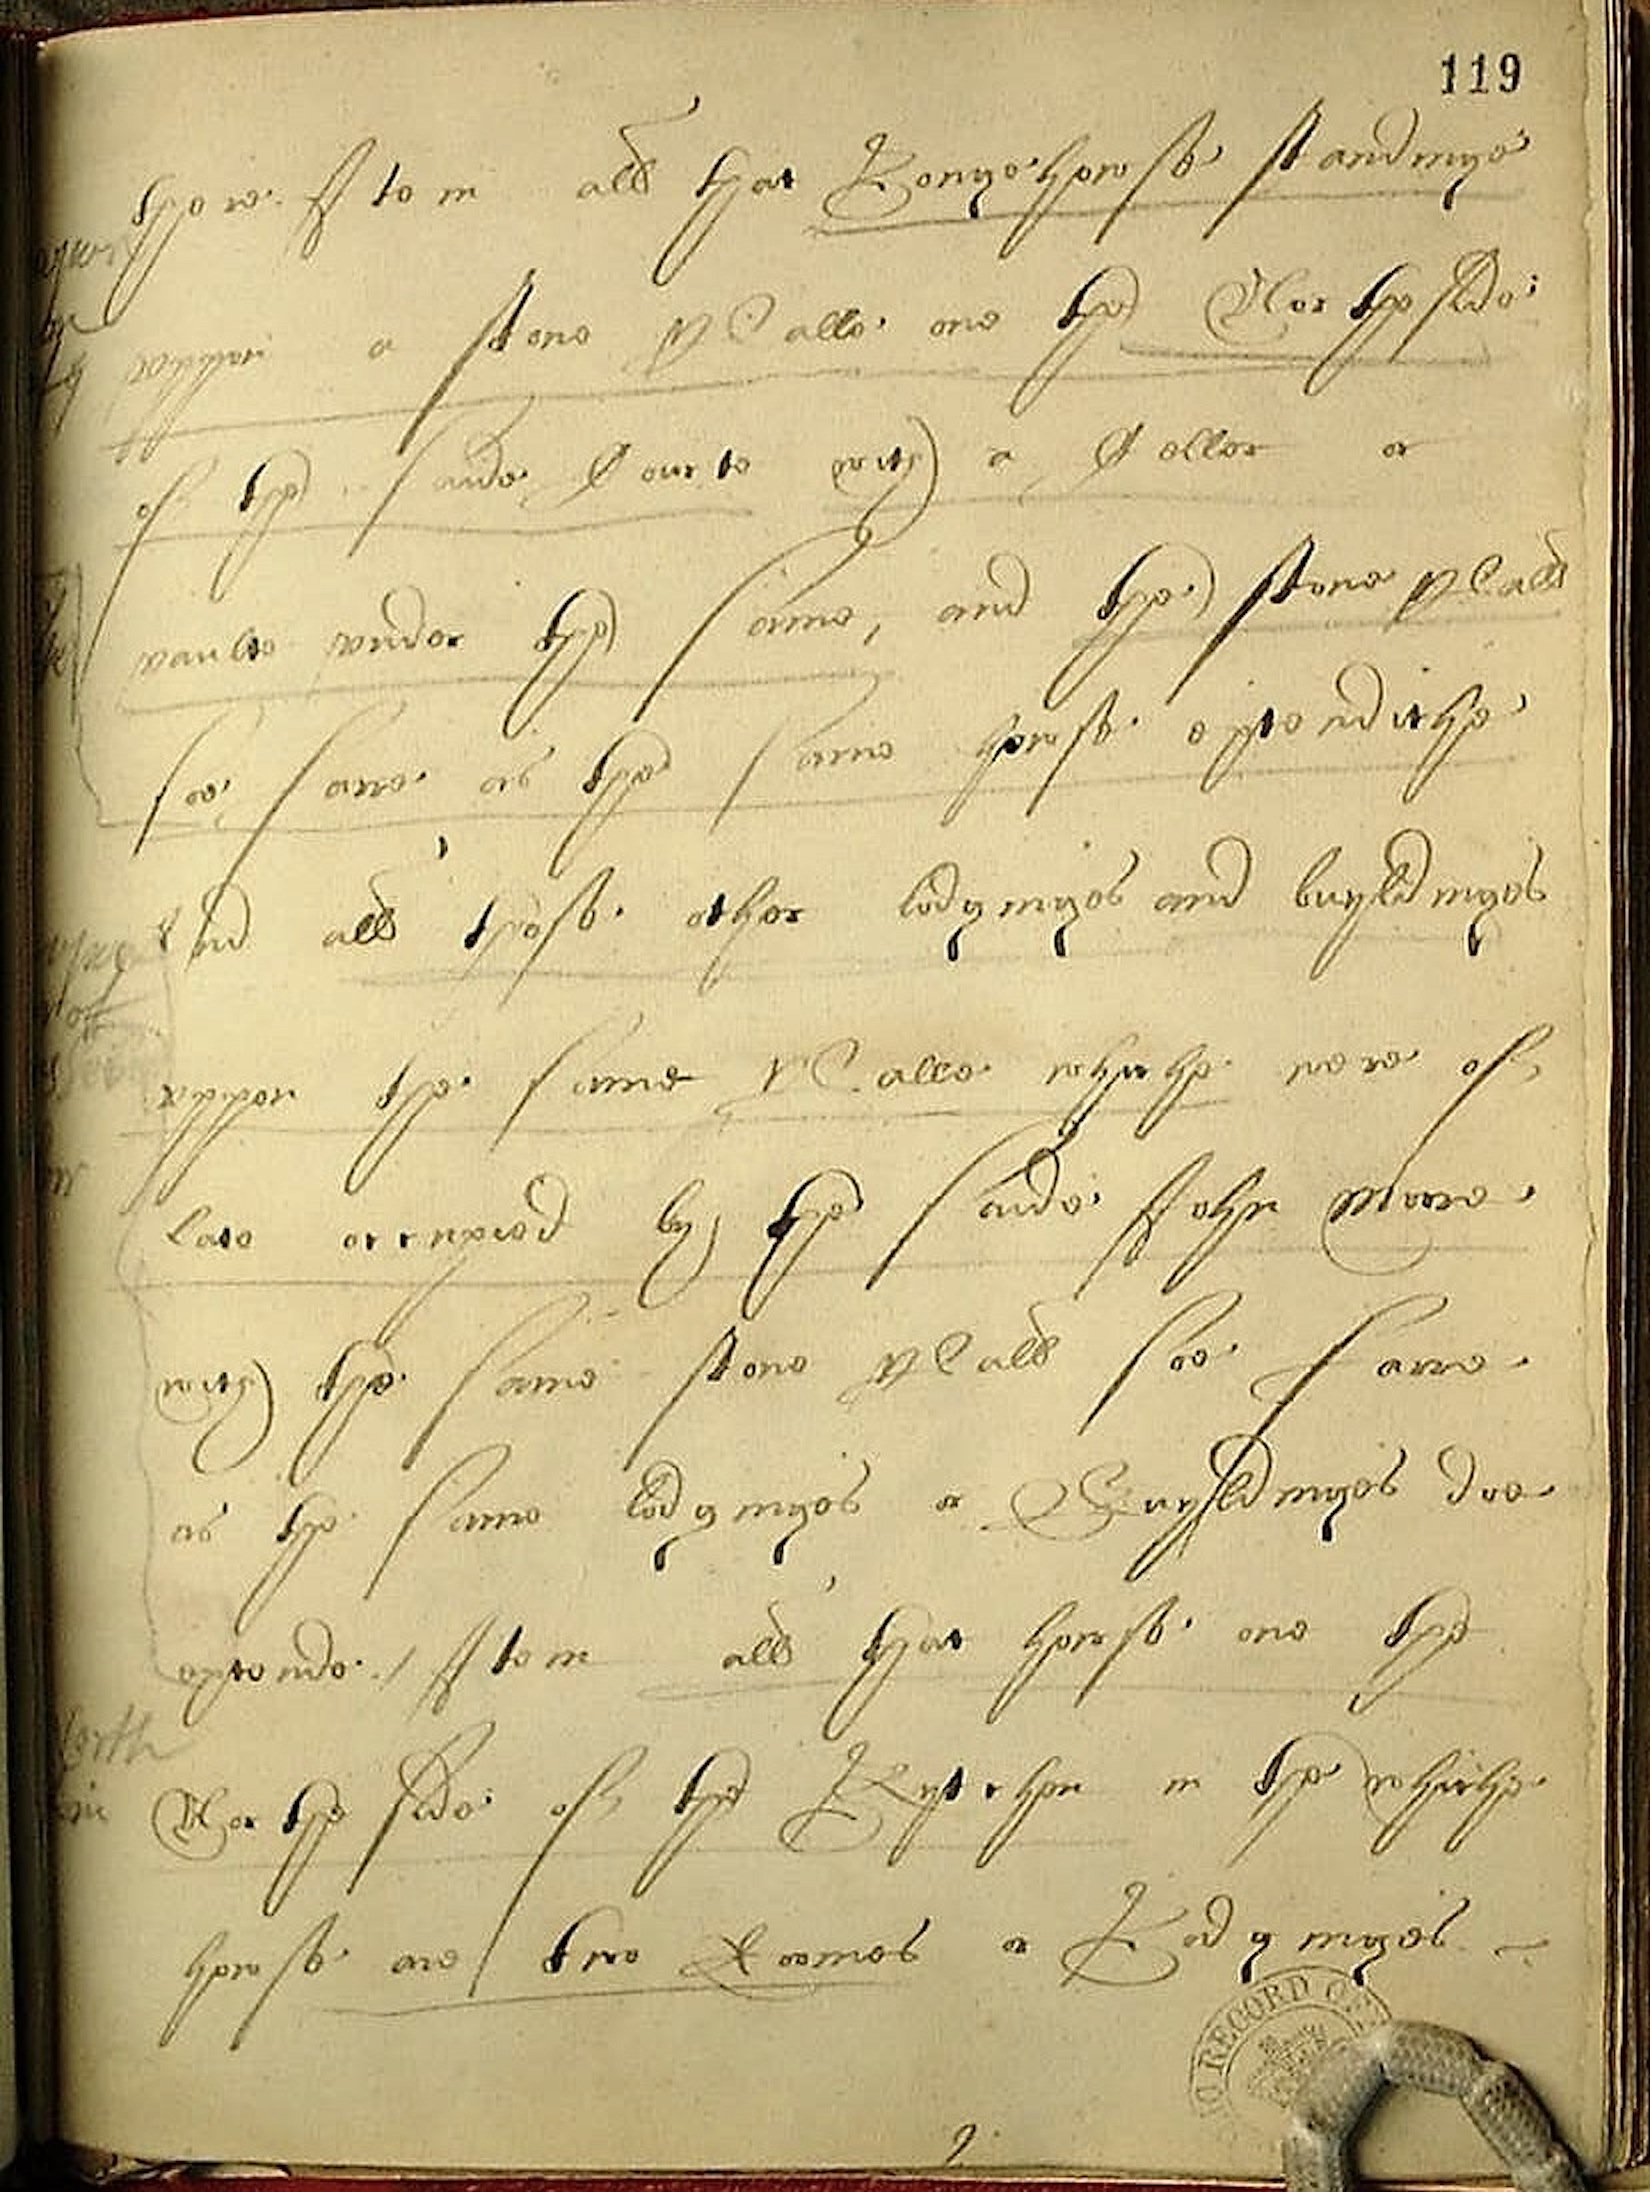 119
there. Item all that Longe howse standinge
vppon a stone Walle one the Northe side
of the saide Courte with a Celler or
vaulte vnder the same, and the stone Wall
soe farre as the same howse extendithe
And all those other lodgynges and buyldynges
vppon the same Walle whiche were of
late occupied by the saide John More
with the same stone Wall soe farre
as the same lodgynges or Buyldynges doe
extende./ Item all that howse one the
Northe side of the Kytchen in the whiche
howse are two Roomes or Lodgynges
RECORD
2